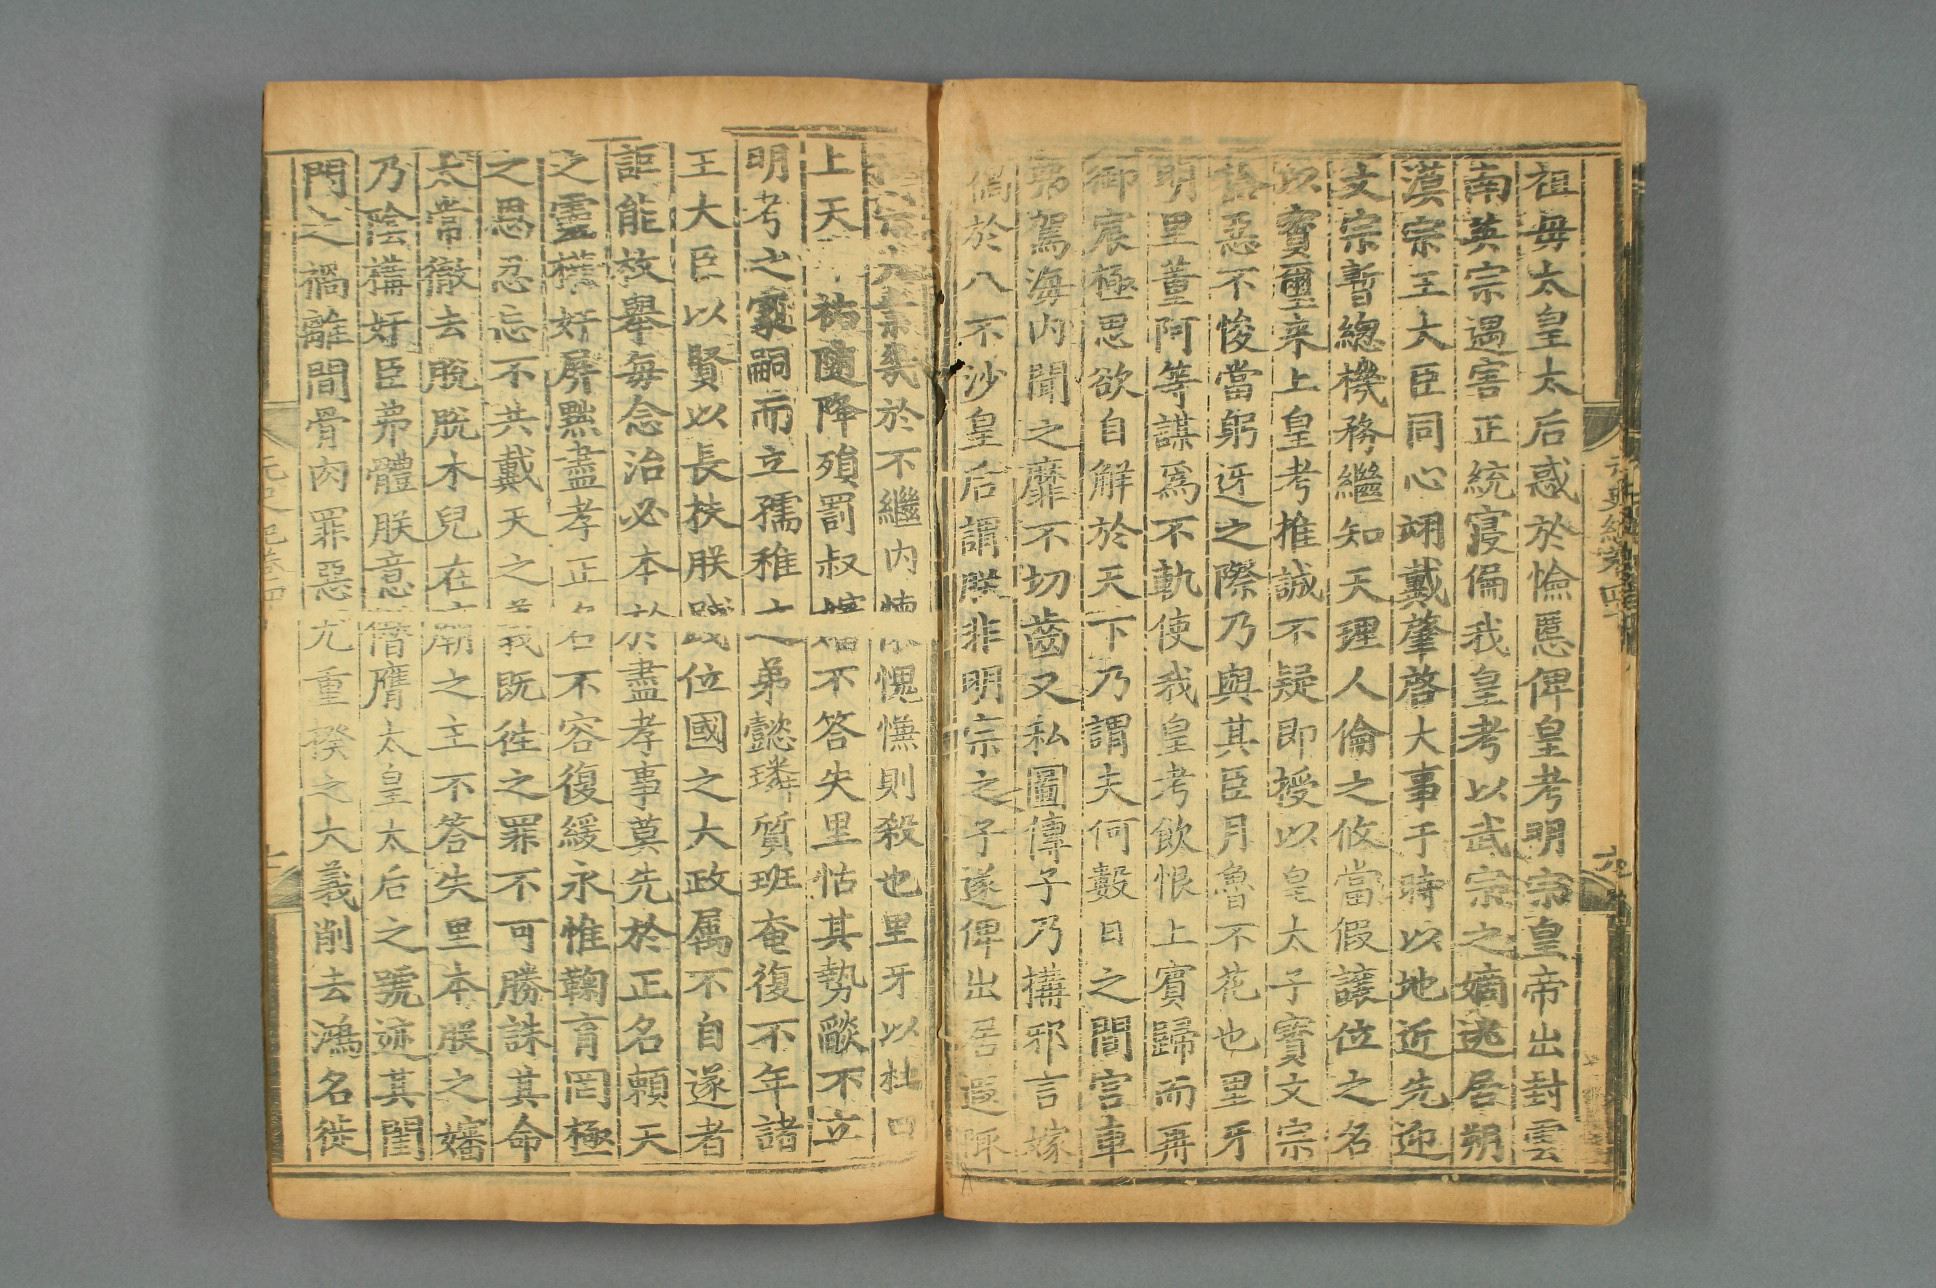 祖母太皇太后惑於憸慝俾皇考明宗皇帝出封雲
南英宗遇害正統寖偏我皇考以武宗之嫡逃居朔
漠宗王大臣同心翊戴肇啓大事于時以地近先迎
文宗暫總機務繼知天理人倫之攸當假讓位之名
以寶璽来上皇考推誠不疑即授以皇太子寶文宗
稔惡不悛當躬迓之際乃與其臣月魯不花也里牙
明里董阿等謀爲不軌使我皇考飲恨上賓歸而再
御宸極思欲自解於天下乃謂夫何數日之間宫車
弗駕海内聞之靡不切齒又私圖傳子乃搆邪言嫁
禍於八不沙皇后謂朕非明宗之子遂俾出居遐陬
祖宗大業幾於不繼内懐愧慊則殺也里牙以杜口
上天 祐隨降殞罰叔嬸不答失里怙其勢燄不立
明考之冢嗣而立孺稚之弟懿璘質班奄復不年諸
王大臣以賢以長扶朕踐位國之大政属不自遂者
詎能枚舉每念治必本於盡孝事莫先於正名頼天
之靈權奸屏黜盡孝正名不容復緩永惟鞠育罔極
之恩忍忘不共戴天之義既徃之罪不可勝誅其命
太常徹去脱脱木兒在廟之主不答失里本朕之嬸
乃陰搆奸臣弗體朕意僭膺太皇太后之號迹其閨
門之禍離間骨肉罪惡尤重揆之大義削去鴻名徙
元史紀卷四